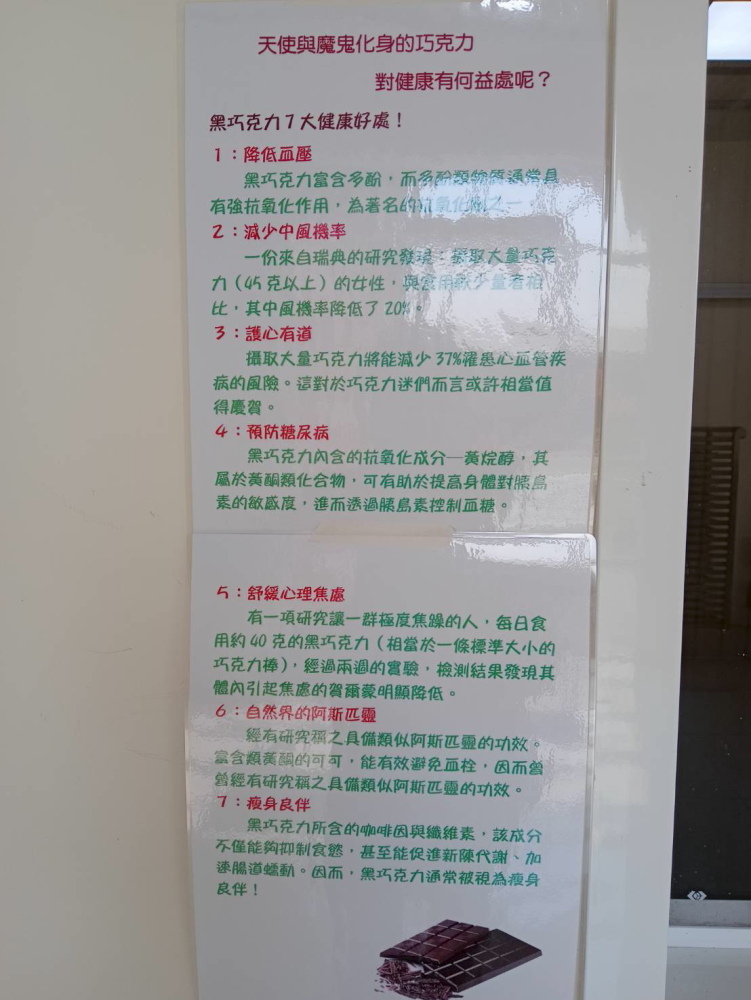 天使與魔鬼化身的巧克力
對健康有何益處呢？
黑巧克力7大健康好處！
1：降低血壓
黑巧克力富含多酚，而多酚類物質通常具
有強抗氧化作用，為著名的抗氧化劑之一。
2：減少中風機率
一份來自瑞典的研究發現：攝取大量巧克
力（45克以上）的女性，與食用較少量者相
比，其中風機率降低了20%。
3：護心有道
攝取大量巧克力將能減少37%罹患心血管疾
病的風險。這對於巧克力迷們而言或許相當值
得慶賀。
4：預防糖尿病
黑巧克力內含的抗氧化成分—黃烷醇，其
屬於黃酮類化合物，可有助於提高身體對胰島
素的敏感度，進而透過胰島素控制血糖。
5：舒緩心理焦慮
有一項研究讓一群極度焦躁的人，每日食
用約40克的黑巧克力（相當於一條標準大小的
巧克力棒），經過兩週的實驗，檢測結果發現其
體內引起焦慮的賀爾蒙明顯降低。
6：自然界的阿斯匹靈
經有研究稱之具備類似阿斯匹靈的功效。
富含類黃酮的可可，能有效避免血栓，因而曾
曾經有研究稱之具備類似阿斯匹靈的功效。
7：瘦身良伴
黑巧克力所含的咖啡因與纖維素，該成分
不僅能夠抑制食慾，甚至能促進新陳代謝、加
速腸道蠕動。因而，黑巧克力通常被視為瘦身
良伴！